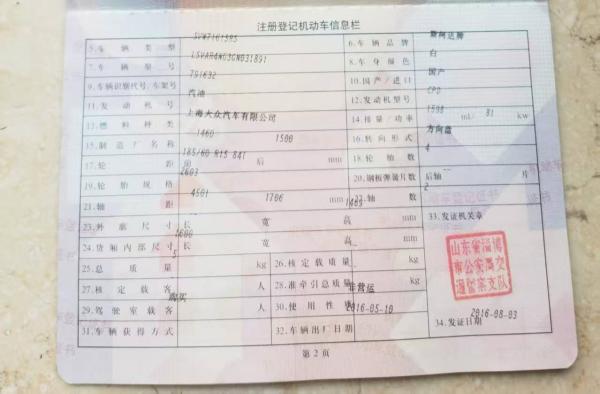 注册登记机动车信息栏
5.车辆类型 SVW7161SRS 6.车辆品牌 斯柯达牌
7.车辆型号 LSVAR4NG3GN031891 8.车身颜色 白
9.车辆识别代号/车架号 791632 10.国产/进口 国产
11.发动机号 汽油 12.发动机型号 CPD
13.燃料种类 上海大众汽车有限公司 14.排量/功率 1598 ml/ 81 kw
15.制造厂名称 1460 1500 16.转向形式 方向盘
17.轮距 前 后 mm 185/60 R15 84T 18.轮胎数 4
19.轮胎规格 2603 20.钢板弹簧片数 后轴 片
21.轴距 4501 1706 mm 1469 22.轴数 2
23.外廓尺寸 长 宽 高 mm 33.发证机关章
24.货厢内部尺寸 长 宽 高 mm
25.总质量 kg 26.核定载质量 kg
27.核定载客 人 28.准牵引总质量 kg
29.驾驶室载客 人 30.使用性质 非营运
31.车辆获得方式 购买 32.车辆出厂日期 2016-05-10
山东省淄博市公安局交通警察支队
2016-08-03
34.发证日期
第2页